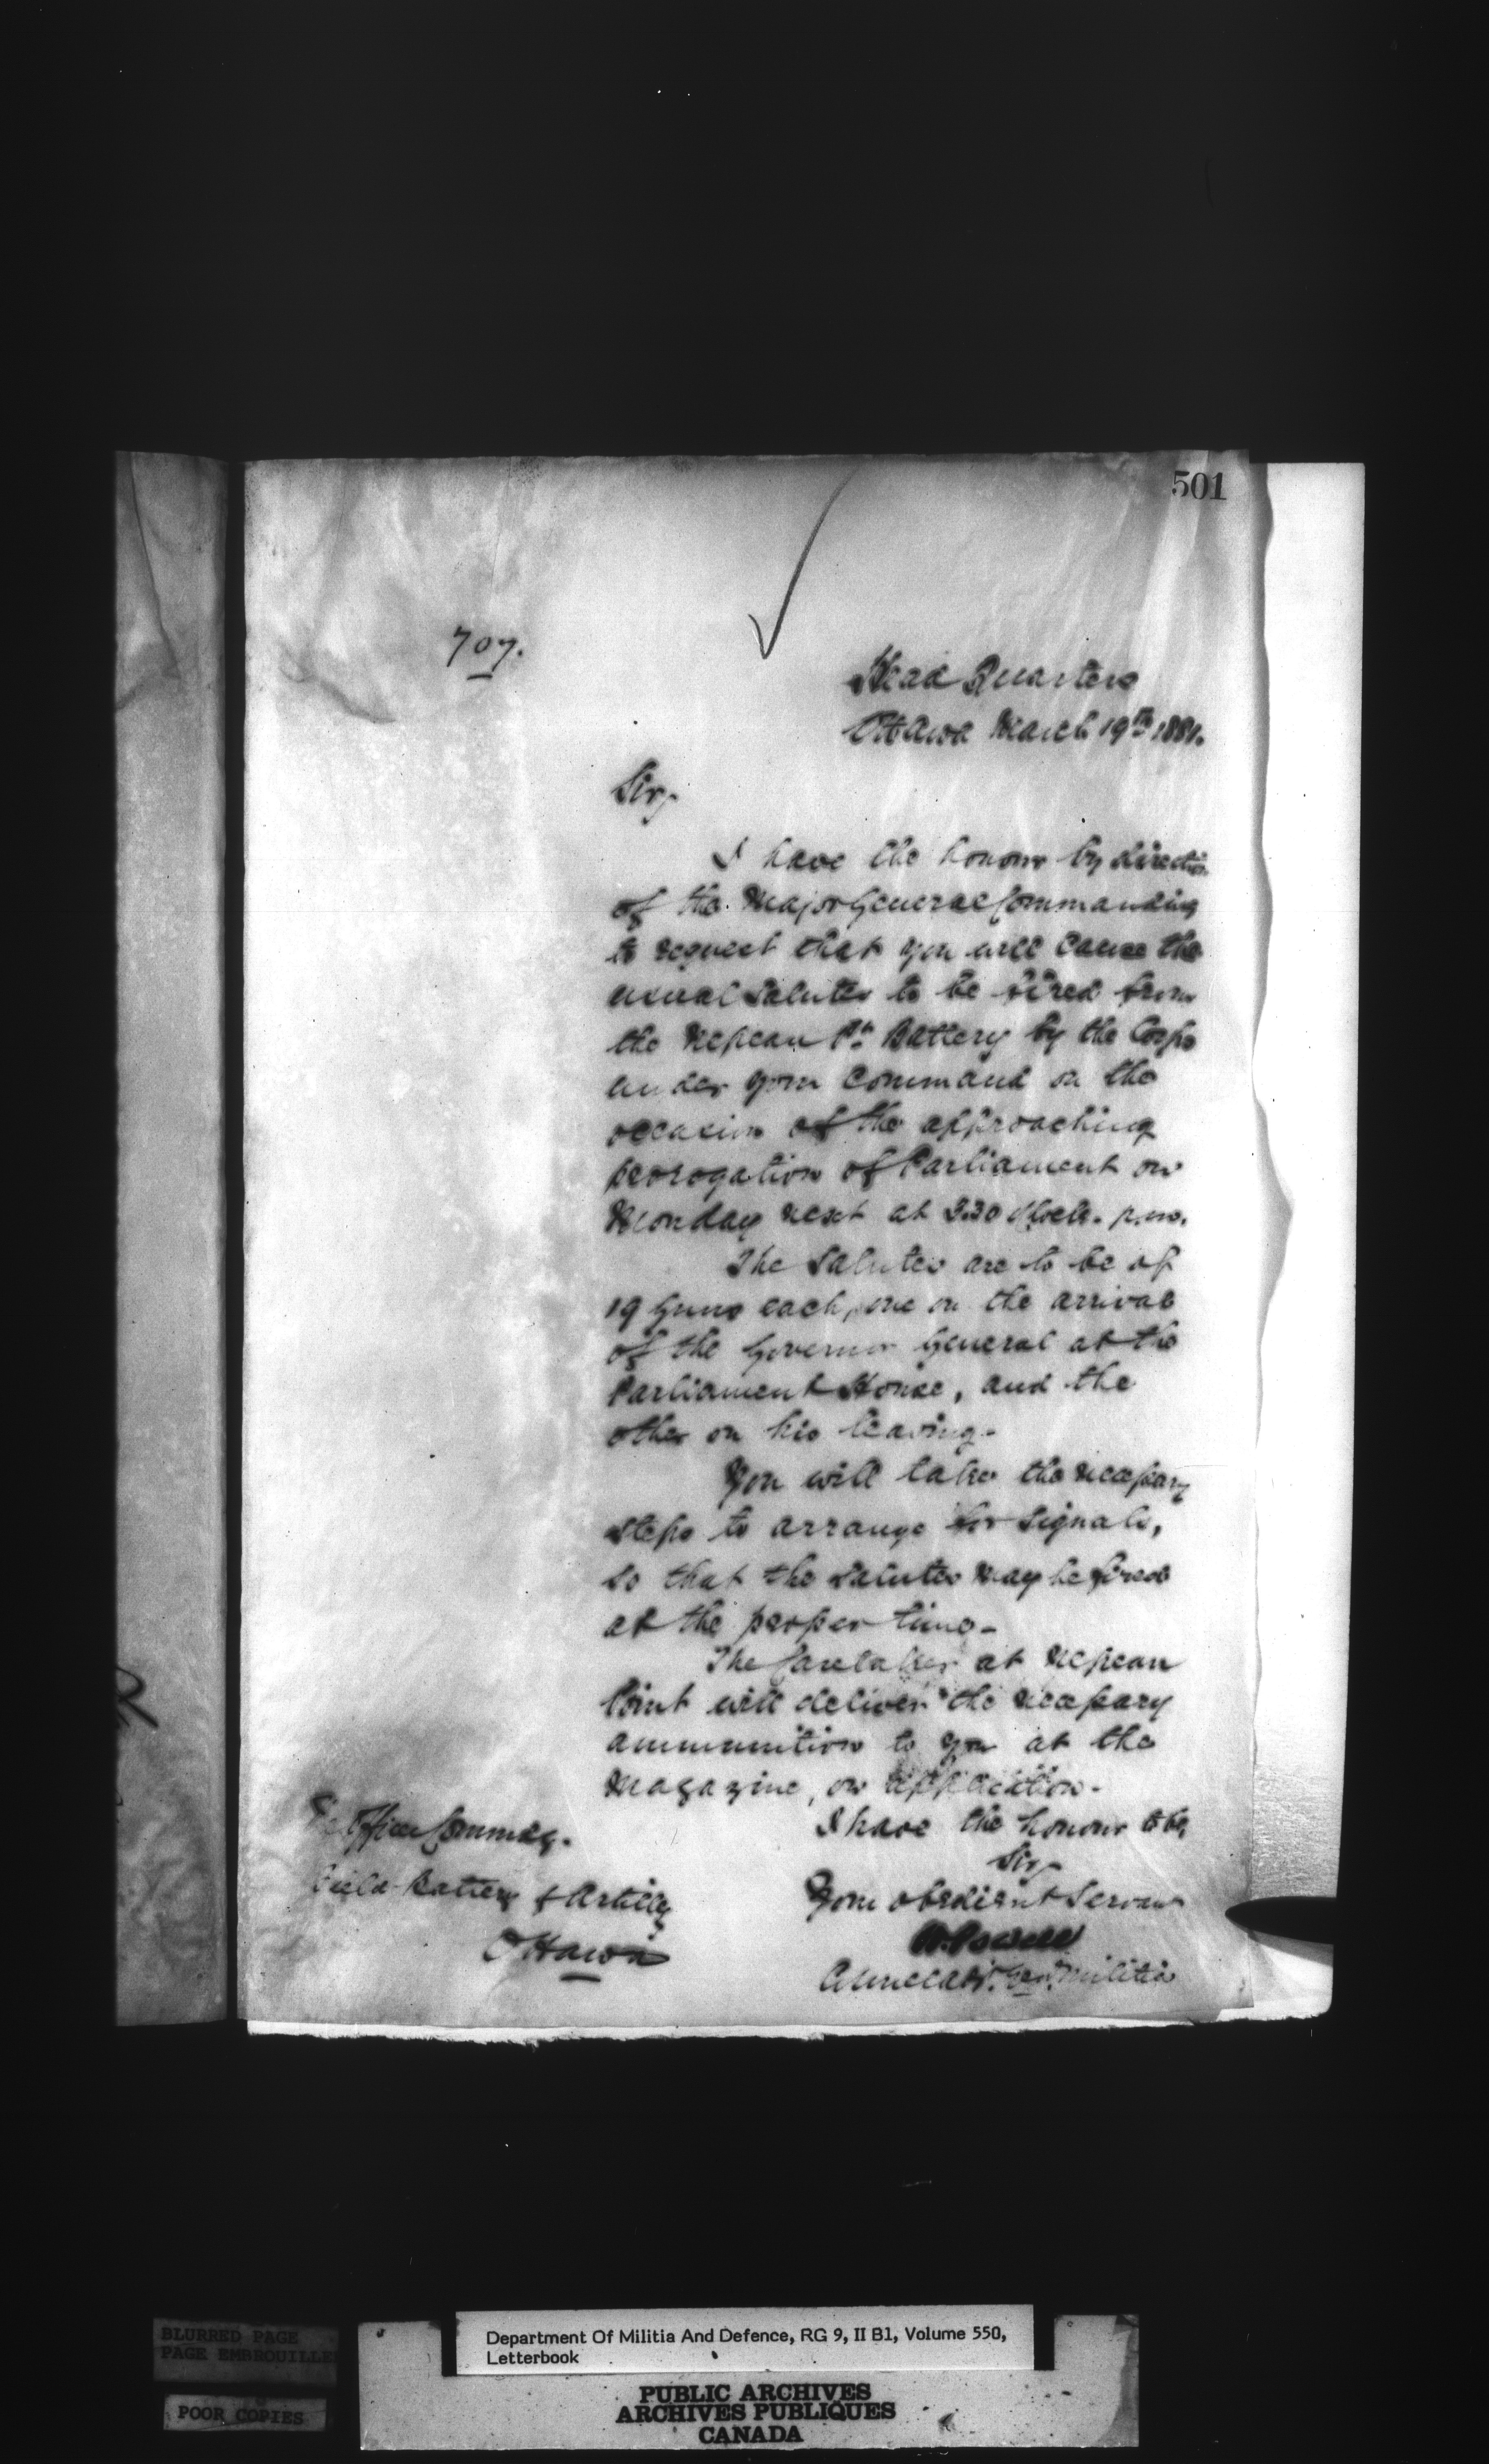 501
707.
Head Quarters
Ottawa March 19th 1881.
Sir,
I have the honour by direction
of the Major General Commanding
to request that you will cause the
usual salutes to be fired from
the Nepean Pt. Battery by the Corps
under your command on the
occasion of the approaching
prorogation of Parliament on
Monday next at 3.30 o'clock. p.m.
The Salutes are to be of
19 Guns each, one on the arrival
of the Governor General at the
Parliament House, and the
other on his leaving.
You will take the necessary
steps to arrange for signals,
so that the salutes may be fired
at the proper time.
The Caretaker at Nepean
Point will deliver the necessary
ammunition to you at the
Magazine, on application.
I have the honour to be,
Sir,
Your obedient Servant
W. Powell
Colonel Adjt. Genl. Militia
The Officer Commdg.
Field Battery of Artilly
Ottawa
BLURRED PAGE
PAGE EMBROUILLEE
POOR COPIES
Department Of Militia And Defence, RG 9, II B1, Volume 550,
Letterbook
PUBLIC ARCHIVES
ARCHIVES PUBLIQUES
CANADA